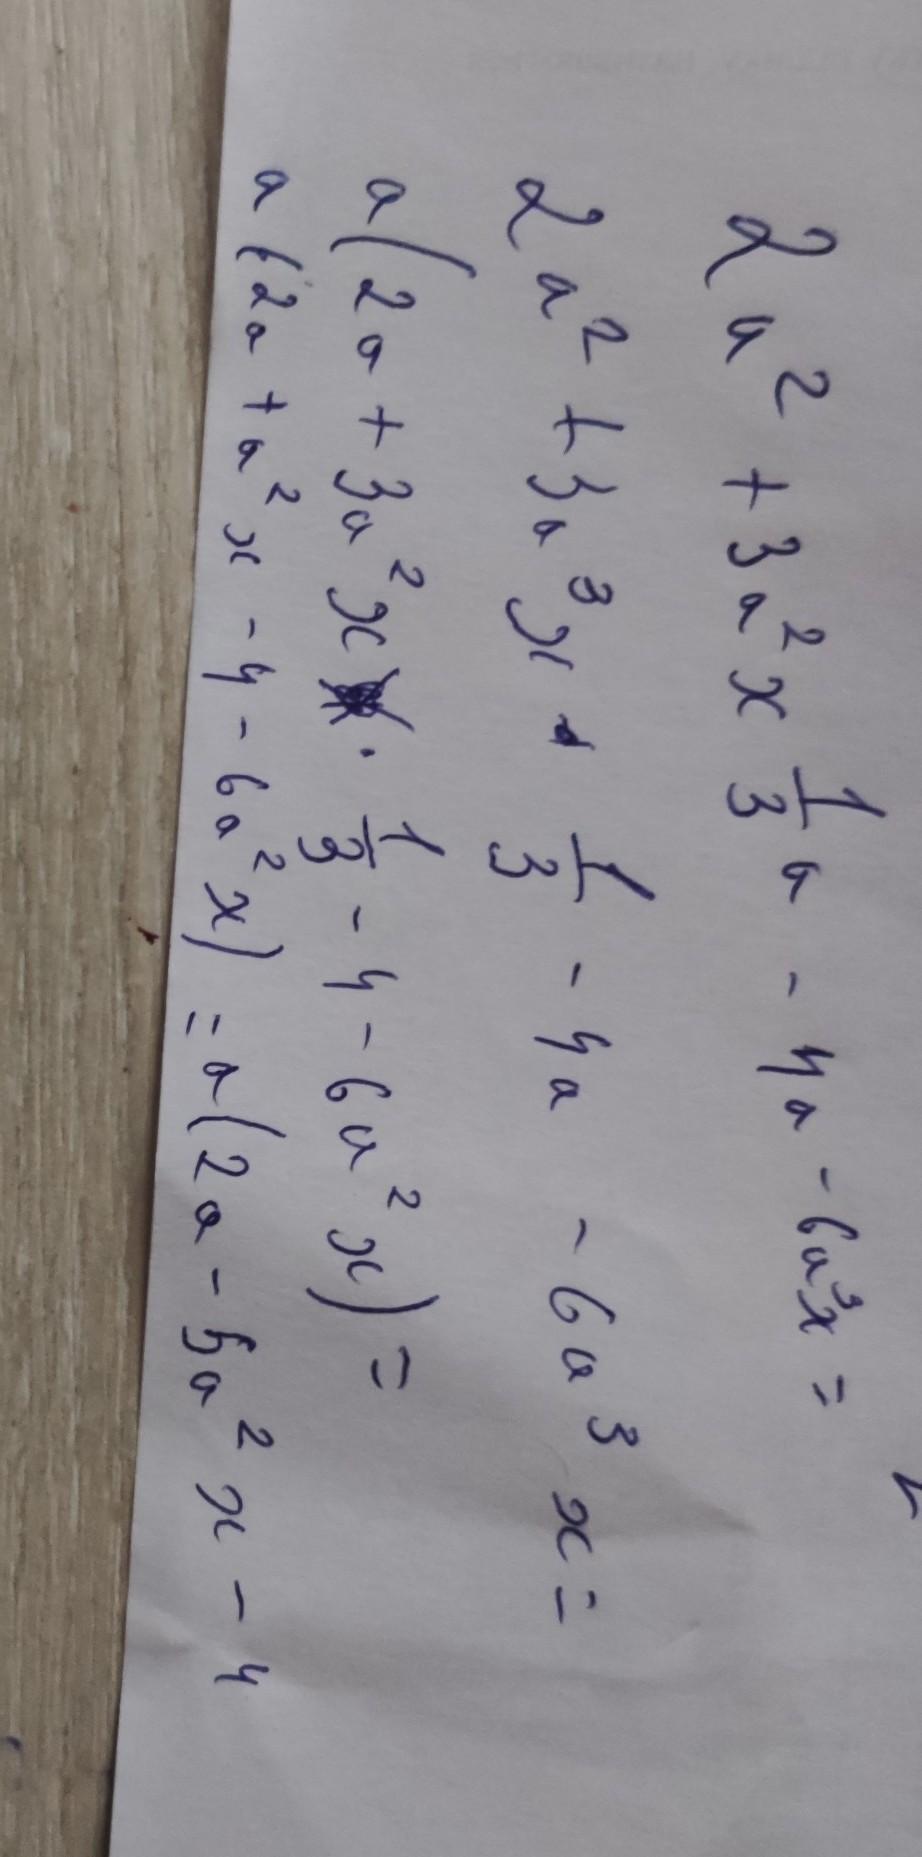 2a² + 3a²x 1/3 a - 4a - 6a³x =
2a² + 3a³x · 1/3 - 4a - 6a³x =
a(2a + 3a²x · 1/3 - 4 - 6a²x) =
a(2a + a²x - 4 - 6a²x) = a(2a - 5a²x - 4